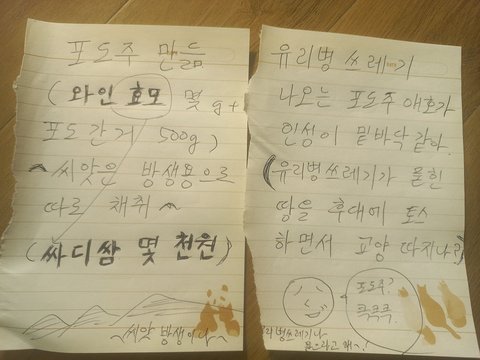 포도주 만듦
(와인 효모 몇 g +
포도 간 거 500g)
^ 씨앗은 방생용으로
따로 채취 ^
(싸디쌈 몇 천원)
~씨앗 방생이다~
유리병 쓰레기
나오는 포도주 애호가
인성이 밑바닥 같아.
(유리병쓰레기가 묻힌
땅을 후대에 토스
하면서 교양 따지나?)
포도주?
큭큭큭.
유리병쓰레기나